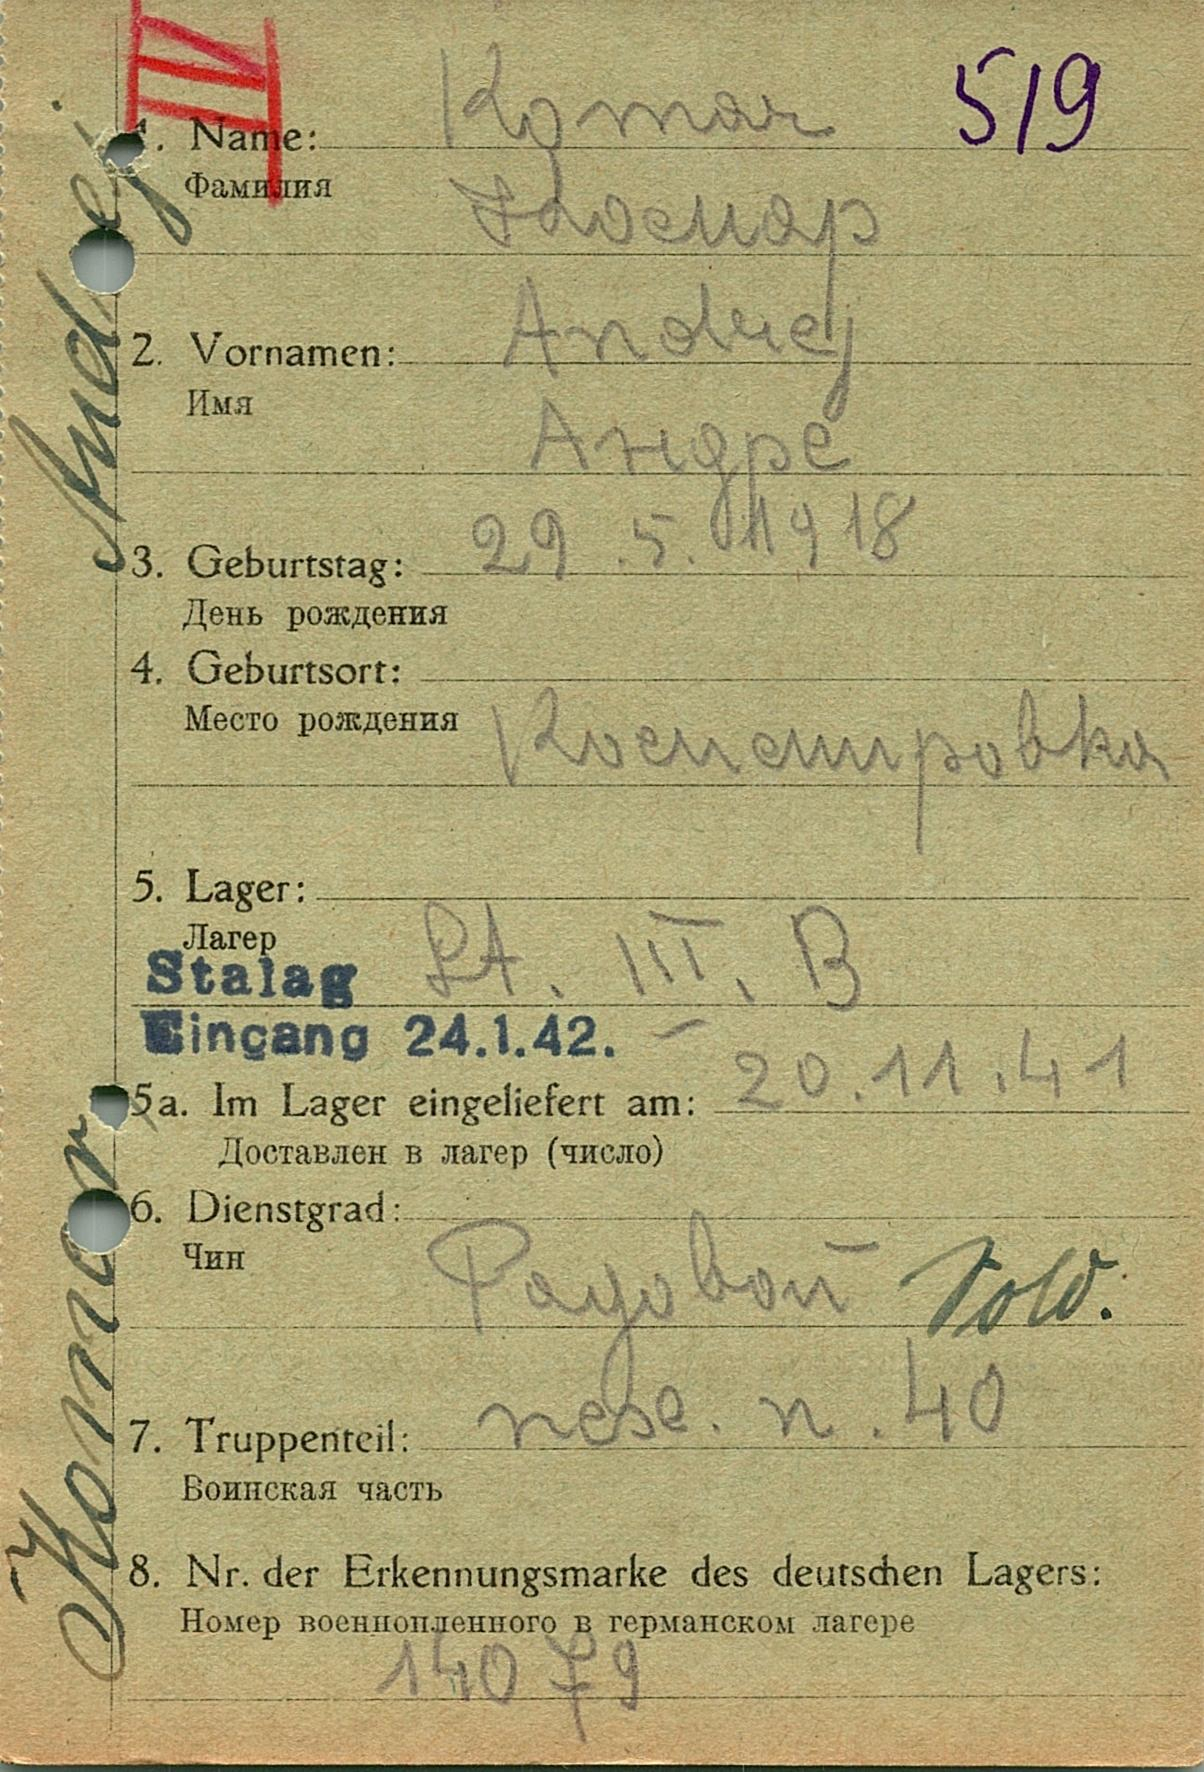 IV
519
1. Name: Komar
Фамилия
Комар
2. Vornamen: Andrej
Имя
Андре
3. Geburtstag: 29.5.1918
День рождения
4. Geburtsort:
Место рождения
5. Lager:
Лагер
Stalag St. III. B
Eingang 24.1.42.
5a. Im Lager eingeliefert am: 20.11.41
Доставлен в лагер (число)
6. Dienstgrad:
Чин
Рядовой Sold.
7. Truppenteil: п. 40
Воинская часть
8. Nr. der Erkennungsmarke des deutschen Lagers:
Номер военнопленного в германском лагере
14079
Komar Andrej